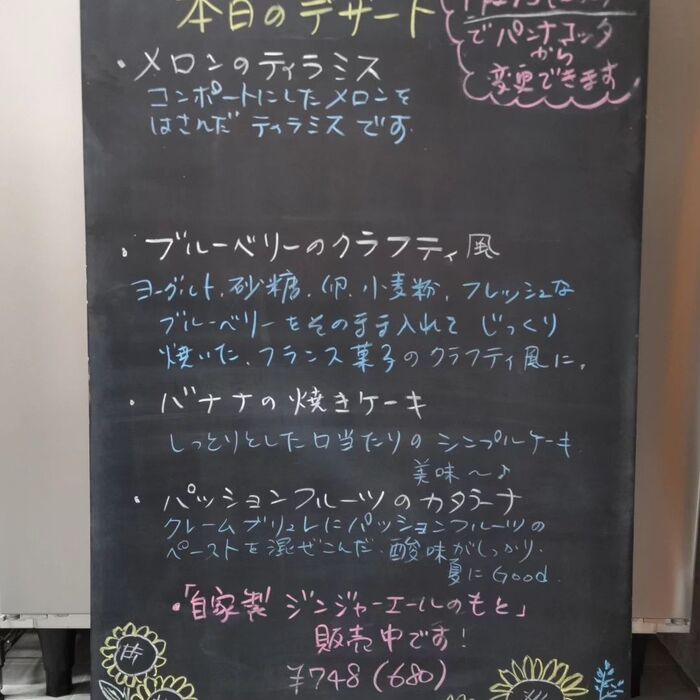 本日のデザート
でパンナコッタ
から
変更できます
・メロンのティラミス
コンポートにしたメロンを
はさんだ ティラミスです
・ブルーベリーのクラフティ風
ヨーグルト、砂糖、卵、小麦粉、フレッシュな
ブルーベリーをそのまま入れて じっくり
焼いた、フランス菓子のクラフティ風に。
・バナナの焼きケーキ
しっとりとした口当たりの シンプルケーキ
美味〜♪
・パッションフルーツのカタラーナ
クレームブリュレにパッションフルーツの
ペーストを混ぜこんだ、酸味がしっかり、
夏にGood.
・「自家製 ジンジャーエールのもと」
販売中です!
¥748(680)